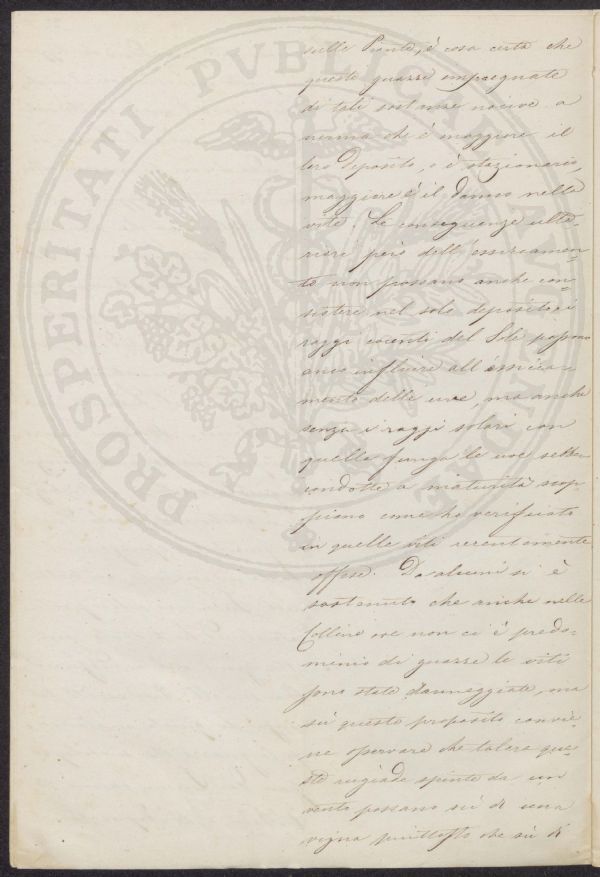 PROSPERITATI PVBLICAE AVGENDAE
sulle Piante, è cosa certa che
queste guazze impregnate
di tali sostanze nocive a
norma che è maggiore il
loro deposito, o è stazionario,
maggiore è il danno nelle
viti. Le conseguenze ulte-
riori però dell'essicamen-
to non possono anche con-
sistere nel solo deposito, i
raggi cocenti del Sole possono
anco influire all'essica-
mento delle uve, ma anche
senza i raggi solari con
quella le uve sebben
condotte a maturità scop-
piano come ho verificato
in quelle viti recentemente
offese. Da alcuni si è
sostenuto che anche nelle
Colline ove non ci è predo-
minio di guazze le viti
sono state danneggiate, ma
sù questo proposito convie-
ne osservare che talora que-
ste rugiade spinte da un
vento possano sù di una
vigna piuttosto che sù di